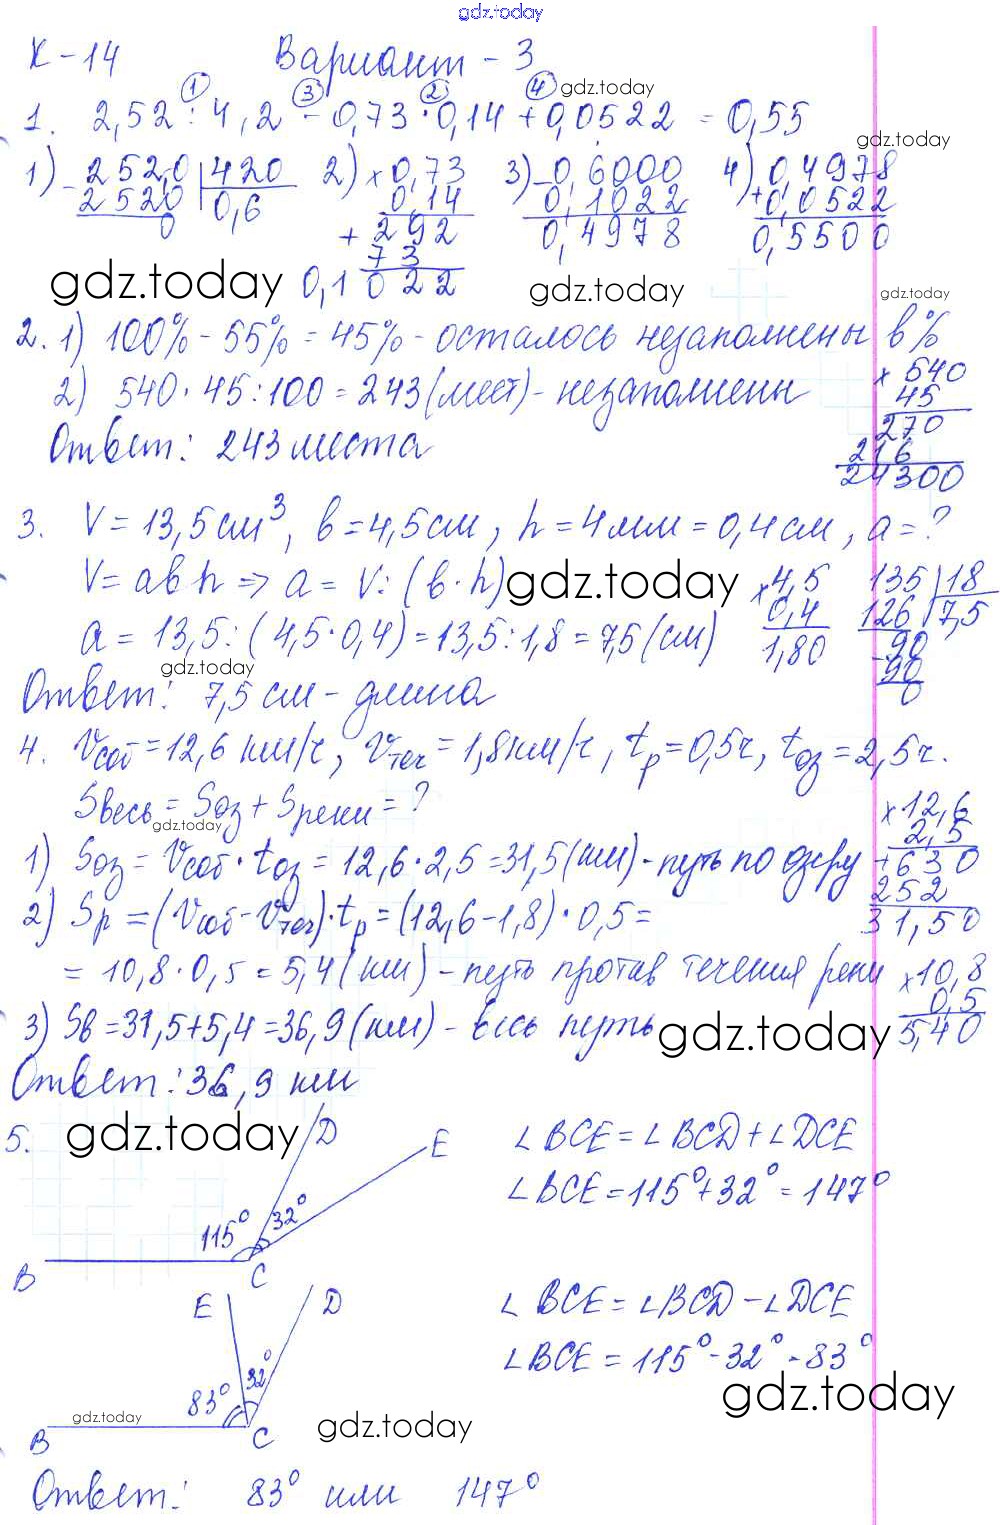 gdz.today
К-14 Вариант - 3
① ③ ② ④ gdz.today
1. 2,52 : 4,2 - 0,73 · 0,14 + 0,0522 = 0,55
gdz.today
1) - 252,0 | 420 2) × 0,73 3) - 0,6000 4) 0,4978
2520 | 0,6 0,14 0,1022 + 0,0522
0 + 292 0,4978 0,5500
73
0,1022
gdz.today gdz.today gdz.today
2. 1) 100% - 55% = 45% - осталось незаполнены в %
2) 540 · 45 : 100 = 243 (мест) - незаполнены
× 540
45
270
216
24300
Ответ: 243 места
3. V = 13,5 см³, в = 4,5 см, h = 4 мм = 0,4 см, a = ?
V = a в h ⇒ a = V : (в · h) gdz.today
× 4,5 135 | 18
0,4 126 | 7,5
1,80 - 90
90
0
a = 13,5 : (4,5 · 0,4) = 13,5 : 1,8 = 7,5 (см)
gdz.today
Ответ: 7,5 см - длина
4. Vсоб = 12,6 км/ч, Vтеч = 1,8 км/ч, tр = 0,5 ч, tоз = 2,5 ч.
Sвесь = Sоз + Sреки = ?
gdz.today
× 12,6
2,5
+ 630
252
31,50
1) Sоз = Vсоб · tоз = 12,6 · 2,5 = 31,5 (км) - путь по озеру
2) Sр = (Vсоб - Vтеч) · tр = (12,6 - 1,8) · 0,5 =
= 10,8 · 0,5 = 5,4 (км) - путь против течения реки
× 10,8
0,5
5,40
3) Sв = 31,5 + 5,4 = 36,9 (км) - весь путь gdz.today
Ответ: 36,9 км
5. gdz.today D E
115° 32°
B C
∠BCE = ∠BCD + ∠DCE
∠BCE = 115° + 32° = 147°
E D
83° 32°
B gdz.today C
∠BCE = ∠BCD - ∠DCE
∠BCE = 115° - 32° = 83°
gdz.today
gdz.today
Ответ: 83° или 147°